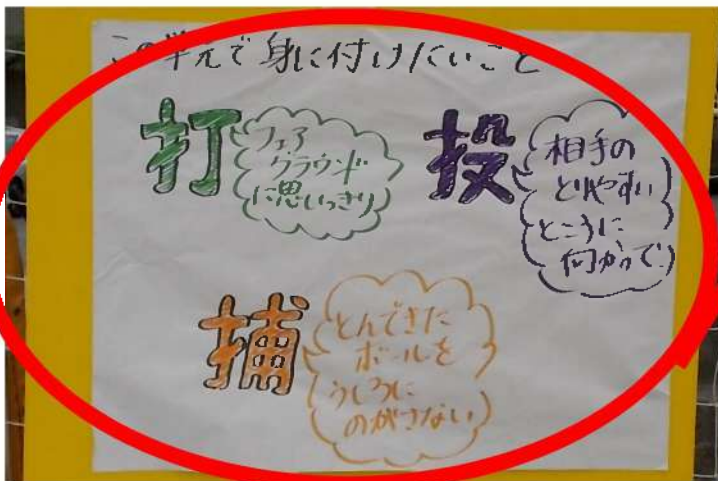 この単元で身に付けたいこと
打
フェア
グラウンド
に思いっきり
投
相手の
とりやすい
ところに
向かって
捕
とんできた
ボールを
うしろに
のがさない